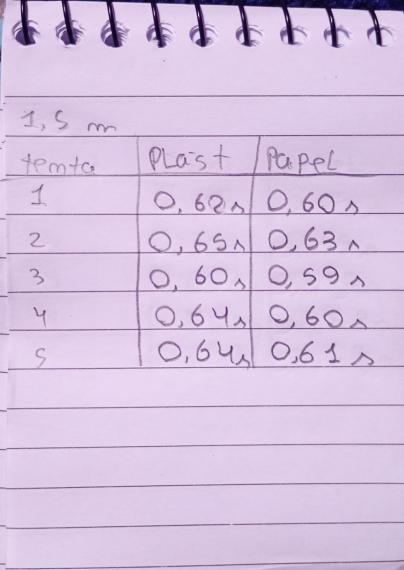 1,5 m
temta Plást Papel
1 0,62s 0,60s
2 0,65s 0,63s
3 0,60s 0,59s
4 0,64s 0,60s
5 0,64s 0,61s